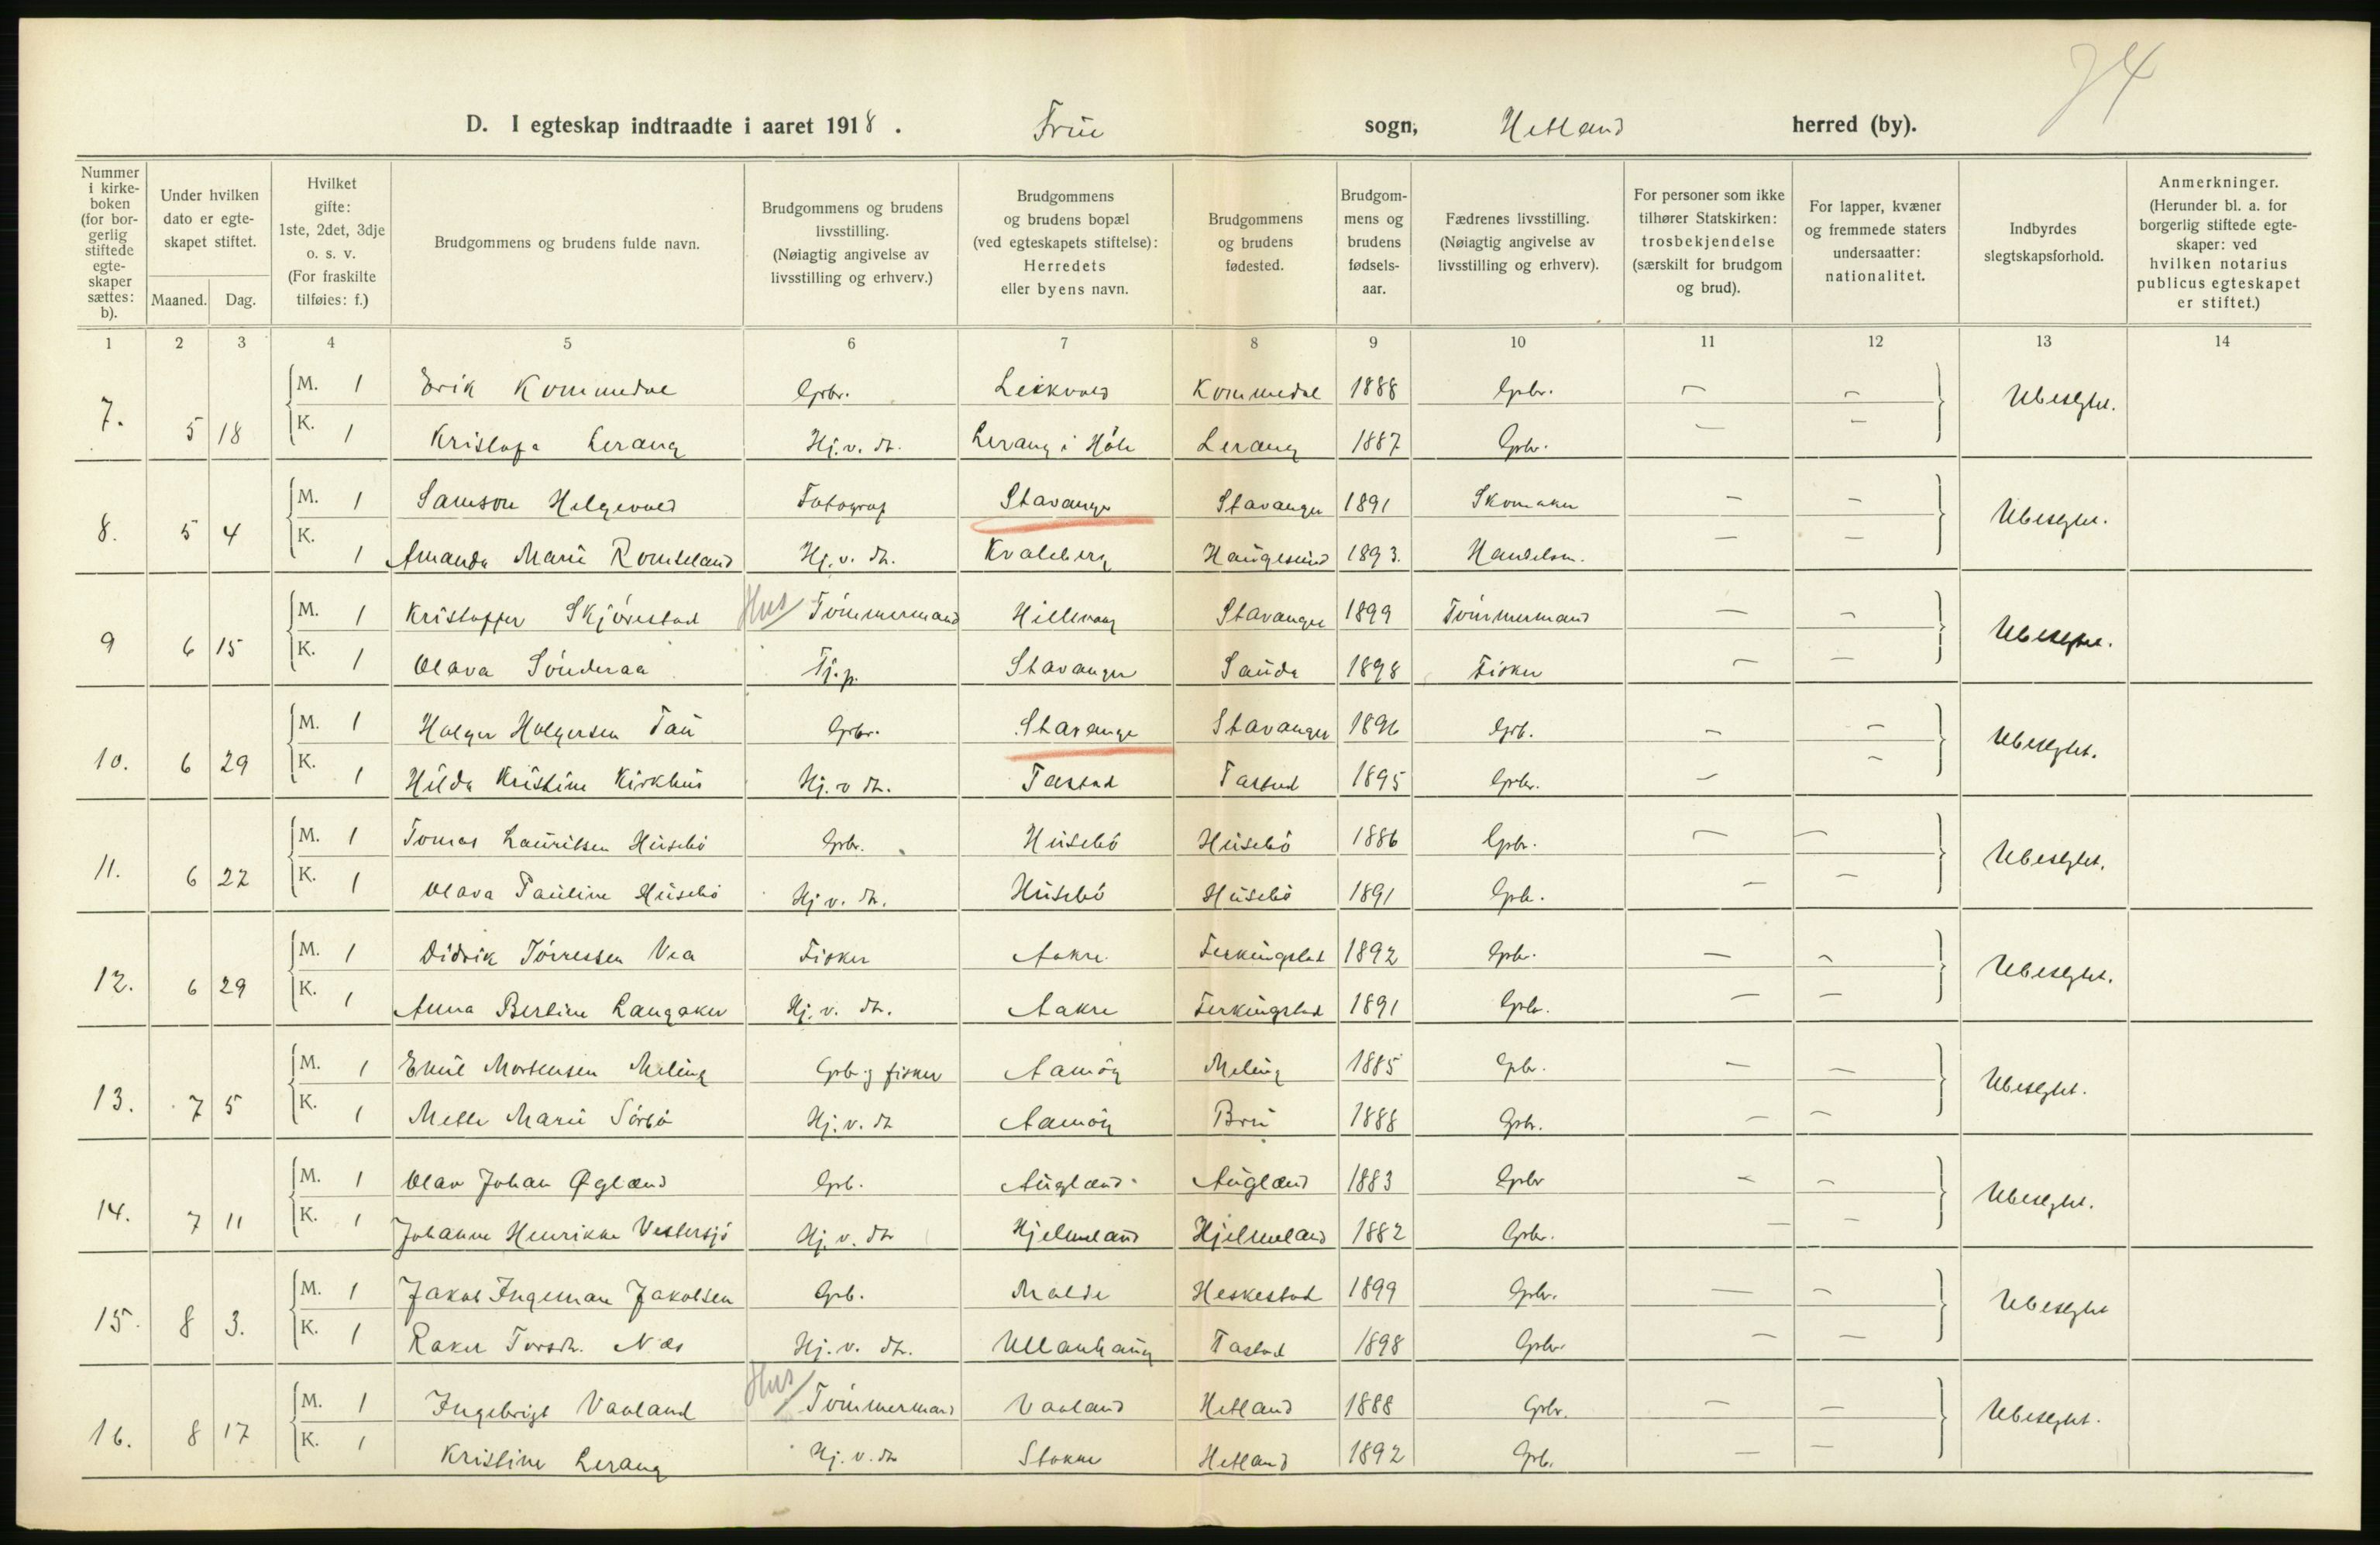 74
D. I egteskap indtraadte i aaret 1918. Frue sogn, Hetland herred (by).
Nummer i kirkeboken (for borgerlig stiftede egteskaper sættes: b).
Under hvilken dato er egteskapet stiftet.
Maaned. Dag.
Hvilket gifte: 1ste, 2det, 3dje o. s. v. (For fraskilte tilføies: f.)
Brudgommens og brudens fulde navn.
Brudgommens og brudens livsstilling. (Nøiagtig angivelse av livsstilling og erhverv.)
Brudgommens og brudens bopæl (ved egteskapets stiftelse): Herredets eller byens navn.
Brudgommens og brudens fødested.
Brudgommens og brudens fødselsaar.
Fædrenes livsstilling. (Nøiagtig angivelse av livsstilling og erhverv).
For personer som ikke tilhører Statskirken: trosbekjendelse (særskilt for brudgom og brud).
For lapper, kvæner og fremmede staters undersaatter: nationalitet.
Indbyrdes slegtskapsforhold.
Anmerkninger. (Herunder bl. a. for borgerlig stiftede egteskaper: ved hvilken notarius publicus egteskapet er stiftet.)
1 2 3 4 5 6 7 8 9 10 11 12 13 14
7. 5 18 M. 1 Erik Kommedal Grbr. Kommedal 1888 Gbr. — — Ubeslgtet.
K. 1 Kristofa Lerang Hj. v. dt. Lerang i Høle Lerang 1887 Gbr. — —
8. 5 4 M. 1 Samson Helgevold Fotograf Stavanger Stavanger 1891 Skomaker — — Ubeslgtet.
K. 1 Amanda Marie Romseland Hj. v. dt. Kvaleberg Haugesund 1893. Handelsm. — —
9 6 15 M. 1 Kristoffer Skjørestad Hus Tömmermand Hillevaag Stavanger 1899 Tömmermand — — Ubeslgtet.
K. 1 Olava Sönderaa Tj. p. Stavanger Sauda 1898 Fisker — —
10. 6 29 M. 1 Holger Holgersen Tau Grbr. Stavanger Stavanger 1896 Grb. — — Ubeslgtet.
K. 1 Hilda Kristine Kirkhus Hj. v dt. Tastad Tastad 1895 Grbr. — —
11. 6 22 M. 1 Tomas Lauritsen Husebö Grbr. Husebö Husebö 1886 Gbr. — — Ubeslgtet.
K. 1 Olava Pauline Husebö Hj v. dt. Husebö Husebö 1891 Gbr. — —
12. 6 29 M. 1 Didrik Törressen Vea Fisker Aakre Ferkingstad 1892 Gbr. — — Ubeslgtet.
K. 1 Anna Bertine Langaker Hj. v. dt. Aakre Ferkingstad 1891 Gbr. — —
13. 7 5 M. 1 Emil Mortensen Meling Gbr og fisker Aamöy Meling 1885 Gbr. — — Ubeslgtet.
K. 1 Mette Marie Sörbö Hj. v. dt Aamöy Bru 1888 Gbr. — —
14. 7 11 M. 1 Olav Johan Øgland Grb. Augland Augland 1883 Grbr — — Ubeslgtet.
K. 1 Johanne Henrikke Vestersjö Hj. v. dt Hjelmeland Hjelmeland 1882 Grbr. — —
15. 8 3. M. 1 Jakob Ingeman Jakobsen Grb. Malde Heskestad 1899 Grbr. — — Ubeslgtet
K. 1 Rakel Torsdt. Næs Hj. v. dt. Ullenhaug Tastad 1898 Grbr. — —
16. 8 17 M. 1 Ingebrigt Vaaland Hus Tömmermand Vaaland Hetland 1888 Grbr. — — Ubeslgtet.
K. 1 Kristine Lerang Hj. v. dt Stokke Hetland 1892 Grb. — —